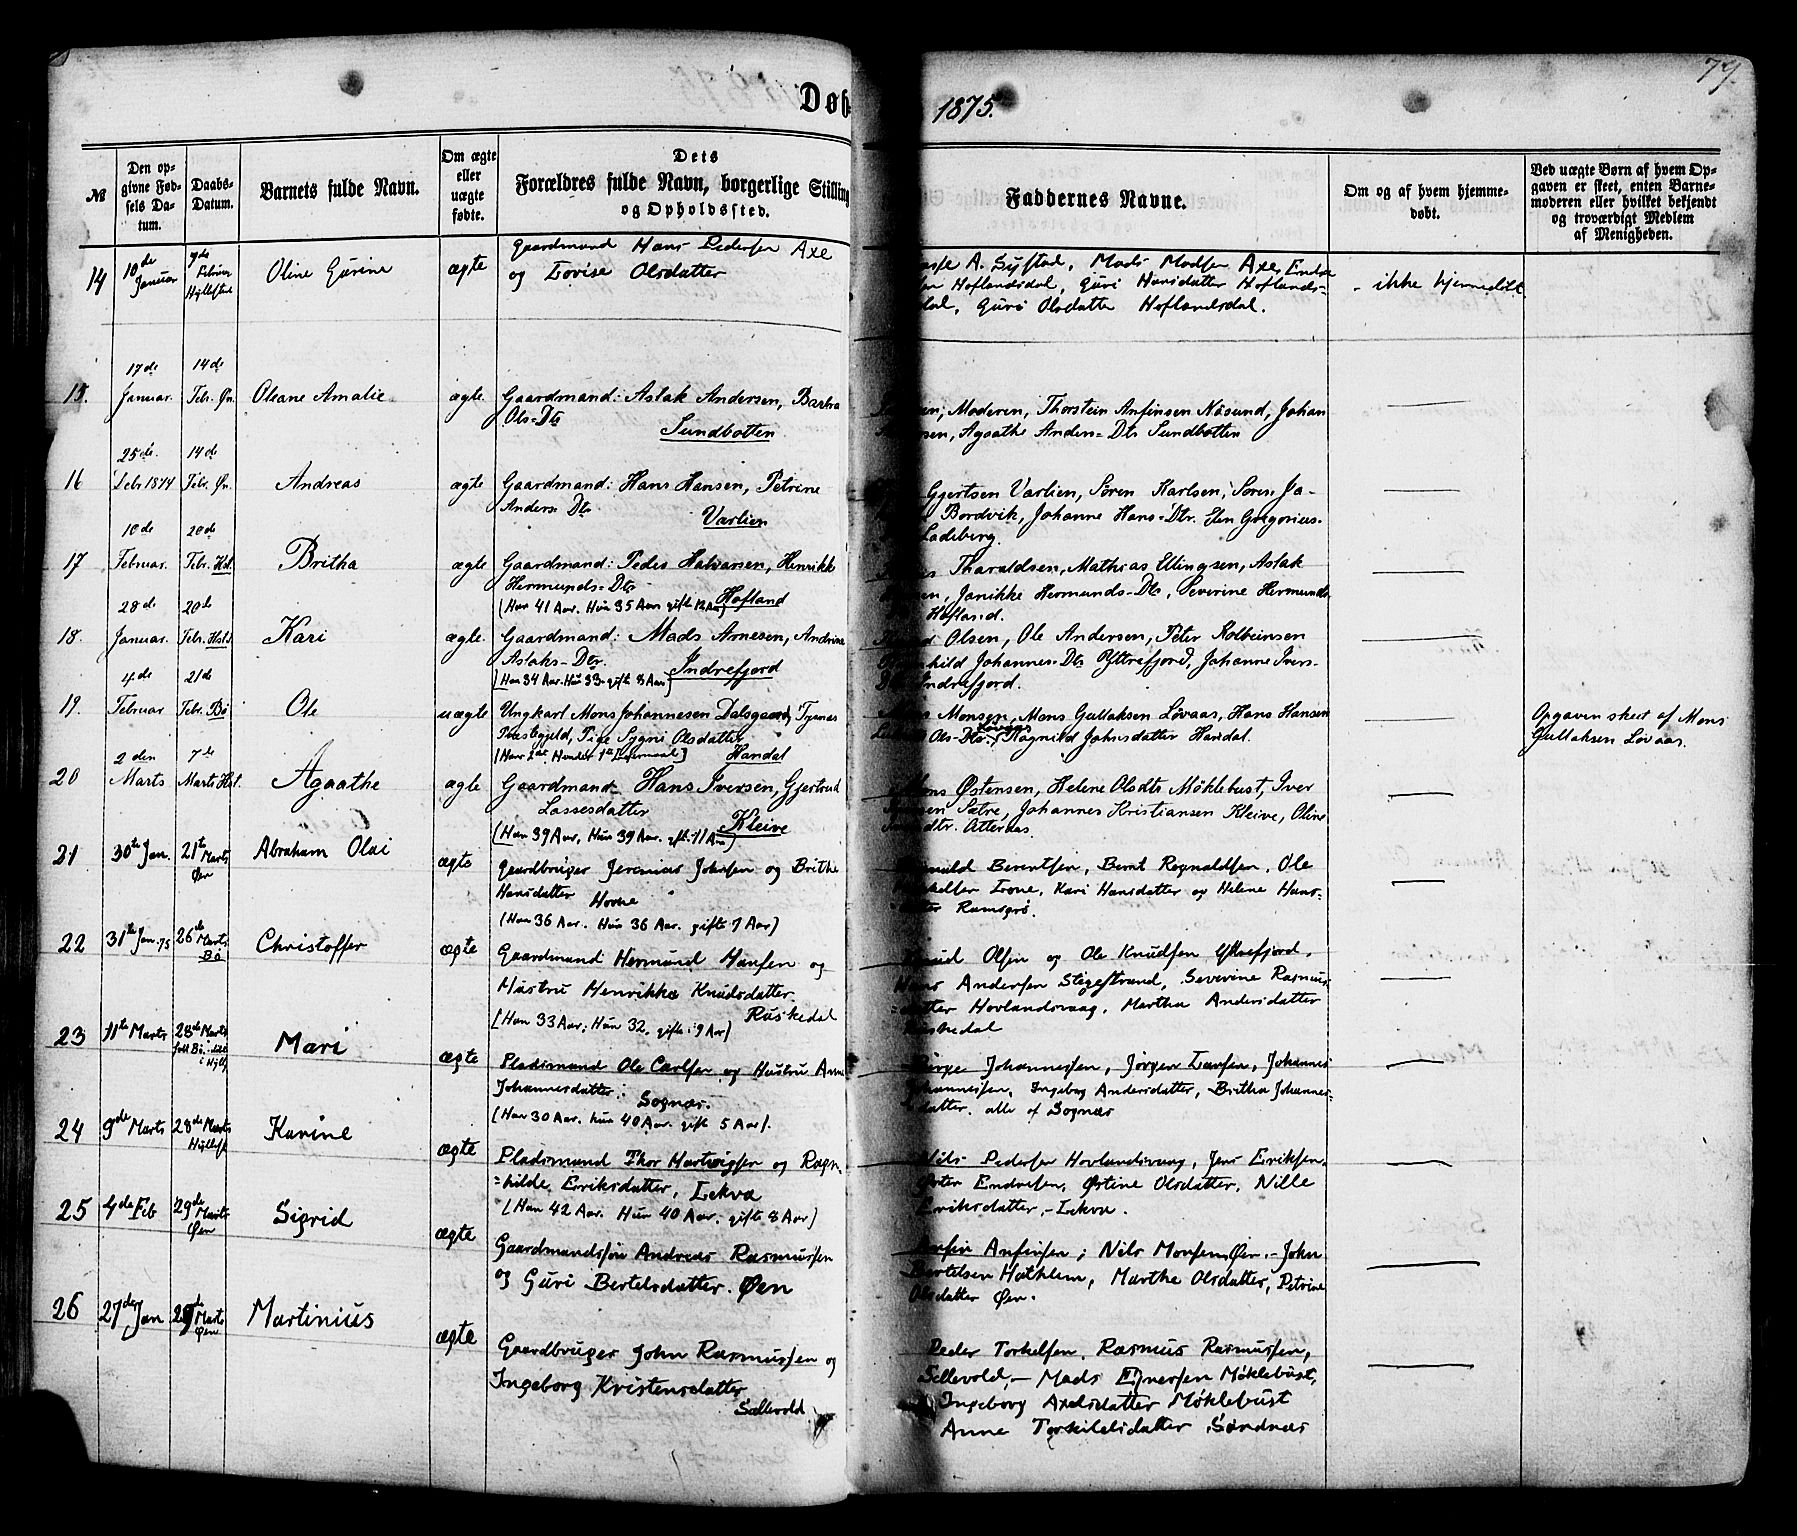 79.
Døb 1875.
№
Den opgivne Fødsels Datum.
Daabs-Datum.
Barnets fulde Navn.
Om ægte eller uægte fødte.
Dets Forældres fulde Navn, borgerlige Stilling og Opholdssted.
Faddernes Navne.
Om og af hvem hjemmedøbt.
Ved uægte Børn af hvem Opgaven er skeet, enten Barnemoderen eller hvilket bekjendt og troværdigt Medlem af Menigheden.
14 10de Januar 7de Februar Hyllestad Oline Gurine ægte Gaardmand Hans Pedersen Axe
og Lovise Olsdatter
A. Systad, Mads Madsen Axe, Endre
Hoflandsdal, Guri Hansdatter Hoflands-
dal, Guri Olsdatte Hoflandsdal.
- ikke hjemmedöbt
15. 17de Januar. 14de Febr. Øn. Oleane Amalie ægte Gaardmand: Aslak Andersen, Barbra
Ols-Dtr Sundbotten
Moderen, Thorstein Anfinsen Näsund, Johan
Agaathe Anders-Dtr Sundbotten
16 25de Febr 1874 14de Febr. Øn. Andreas ægte Gaardmand: Hans Hansen, Petrine
Anders Dtr Varlien
Ggertsen Varlien, Søren Karlsen, Søren Ja-
Bordvik, Johanne Hans-Dtr. Elen Gregorius-
Ladeberg.
17 10de Februar. 20de Febr. Hst. Britha ægte Gaardmand: Peder Halvorsen, Henrikk
Hermunds-Dtr
(Han 41 Aar. Hun 35 Aar gifte 12 Aar) Hofland
Tharaldsen, Mathias Ellingsen, Aslak
Janikke Hermunds-Dtr, Severine Hermunds
Hofland.
18. 28de Januar. 20de Febr. Hst. Kari ægte. Gaardmand: Mads Arnesen, Andrine
Aslaks-Dtr.
(Han 34 Aar. Hun 33. gifte 8 Aar) Indrefjord
Olsen, Ole Andersen, Peter Kolbeinsen
Johannes-Dtr Yttrefjord, Johanne Ivers-
Dtr Indrefjord.
19. 4de Februar 21de Febr. Bö Ole uægte Ungkarl Mons Johannesen Dalsgaard, Tysnæs
Præstegjeld, Pige Sygni Olsdatter
(Hans 2det Hendes 1ste Leiermaal) Handal
Monsen, Mons Gullaksen Løvaas, Hans Hansen
Ols-Dtr Ragnild Johnsdatter Handal.
Opgaven skeet af Mons
Gullaksen Løvaas.
20 2den Marts 7de Marts Hst. Agaathe ægte Gaardmand Hans Iversen, Gjertrud
Lassesdatter
(Han 39 Aar, Hun 39 Aar. gifte 11 Aar) Kleive
Østensen, Helene Olsdtr Möklebust, Iver
Sætre, Johannes Kristiansen Kleive, Oline
Atteraas.
21 30te Jan. 21te Marts Øen Abraham Olai ægte Gaardbruger Jeremias Johnsen og Brithe
Hansdatter Hovne
(Han 36 Aar. Hun 36 Aar gifte 7 Aar)
Berentsen, Bernt Rognaldsen, Ole
Trone, Kari Hansdatter og Helene Hans-
datter Ramsgrö.
22 31te Jan. 75 26de Marts Bö Christoffer ægte Gaardmand Hermund Hansen og
Hustru Henrikka Knudsdatter
(Han 33 Aar; Hun 32, gifte: 9 Aar) Ruskedal
Knud Olsen og Ole Knudsen Yttrefjord,
Hans Andersen Stigestrand, Severine Rasmus-
datter Hovlandsvaag, Martha Andersdatter
Ruskedal
23 11te Marts 28de Marts Mari ægte Pladsmand Ole Carlsen og Hustru Anne
Johannesdatter: Sognæs.
(Han 30 Aar. hun 40 Aar. gifte 5 Aar).
Børge Johannessen, Jørgen Larsen, Johannes
Johannessen, Ingebog Andersdatter, Britha Johannes-
datter. alle af Sognæs
24 9de Marts 28de Marts Hyllest Karine ægte Pladsmand Thor Hartvigsen og Ragn-
hilde Eriksdatter, Lekva
(Han 42 Aar. Hun 40 Aar. gifte 8 Aar)
Nils Pedersen Hovlandsvaag, Jens Eriksen.
Peter Endresen, Østine Olsdatter, Nille
Eriksdatter,- Lekva.
25 4de Feb 29de Marts Øen Sigrid ægte Gaardmandssøn Andreas Rasmussen
og Guri Bertelsdatter. Øen
Anfin Anfinsen, Nils Monsen Øen.- John
Bertelsen Hatklem, Marthe Olsdatter, Petrine
Olsdatter Øen.
26 27de Jan 29de Marts Øen Martinius ægte Gaardbruger John Rasmussen og
Ingeborg Kristensdatter
Sellevold
Peder Torkelsen, Rasmus Rasmussen,
Sellevold,- Mads Ejnersen Möklebust,
Ingeborg Axelsdatter Möklebust
Anne Torkildsdatter Sørdnæs